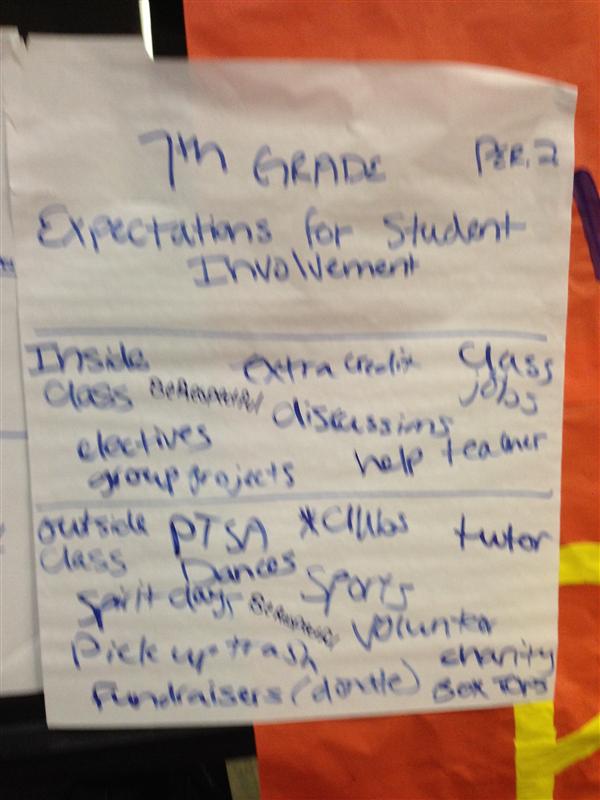 7th GRADE PER. 2
Expectations for Student
Involvement
Inside extra credit Class
Class Be Respectful discussions jobs
electives help teacher
group projects
outside PTSA *Clubs tutor
Class Dances Sports
Spirit days Be Respectful Volunter
Pick up trash charity
Fundraisers (donate) Box Tops